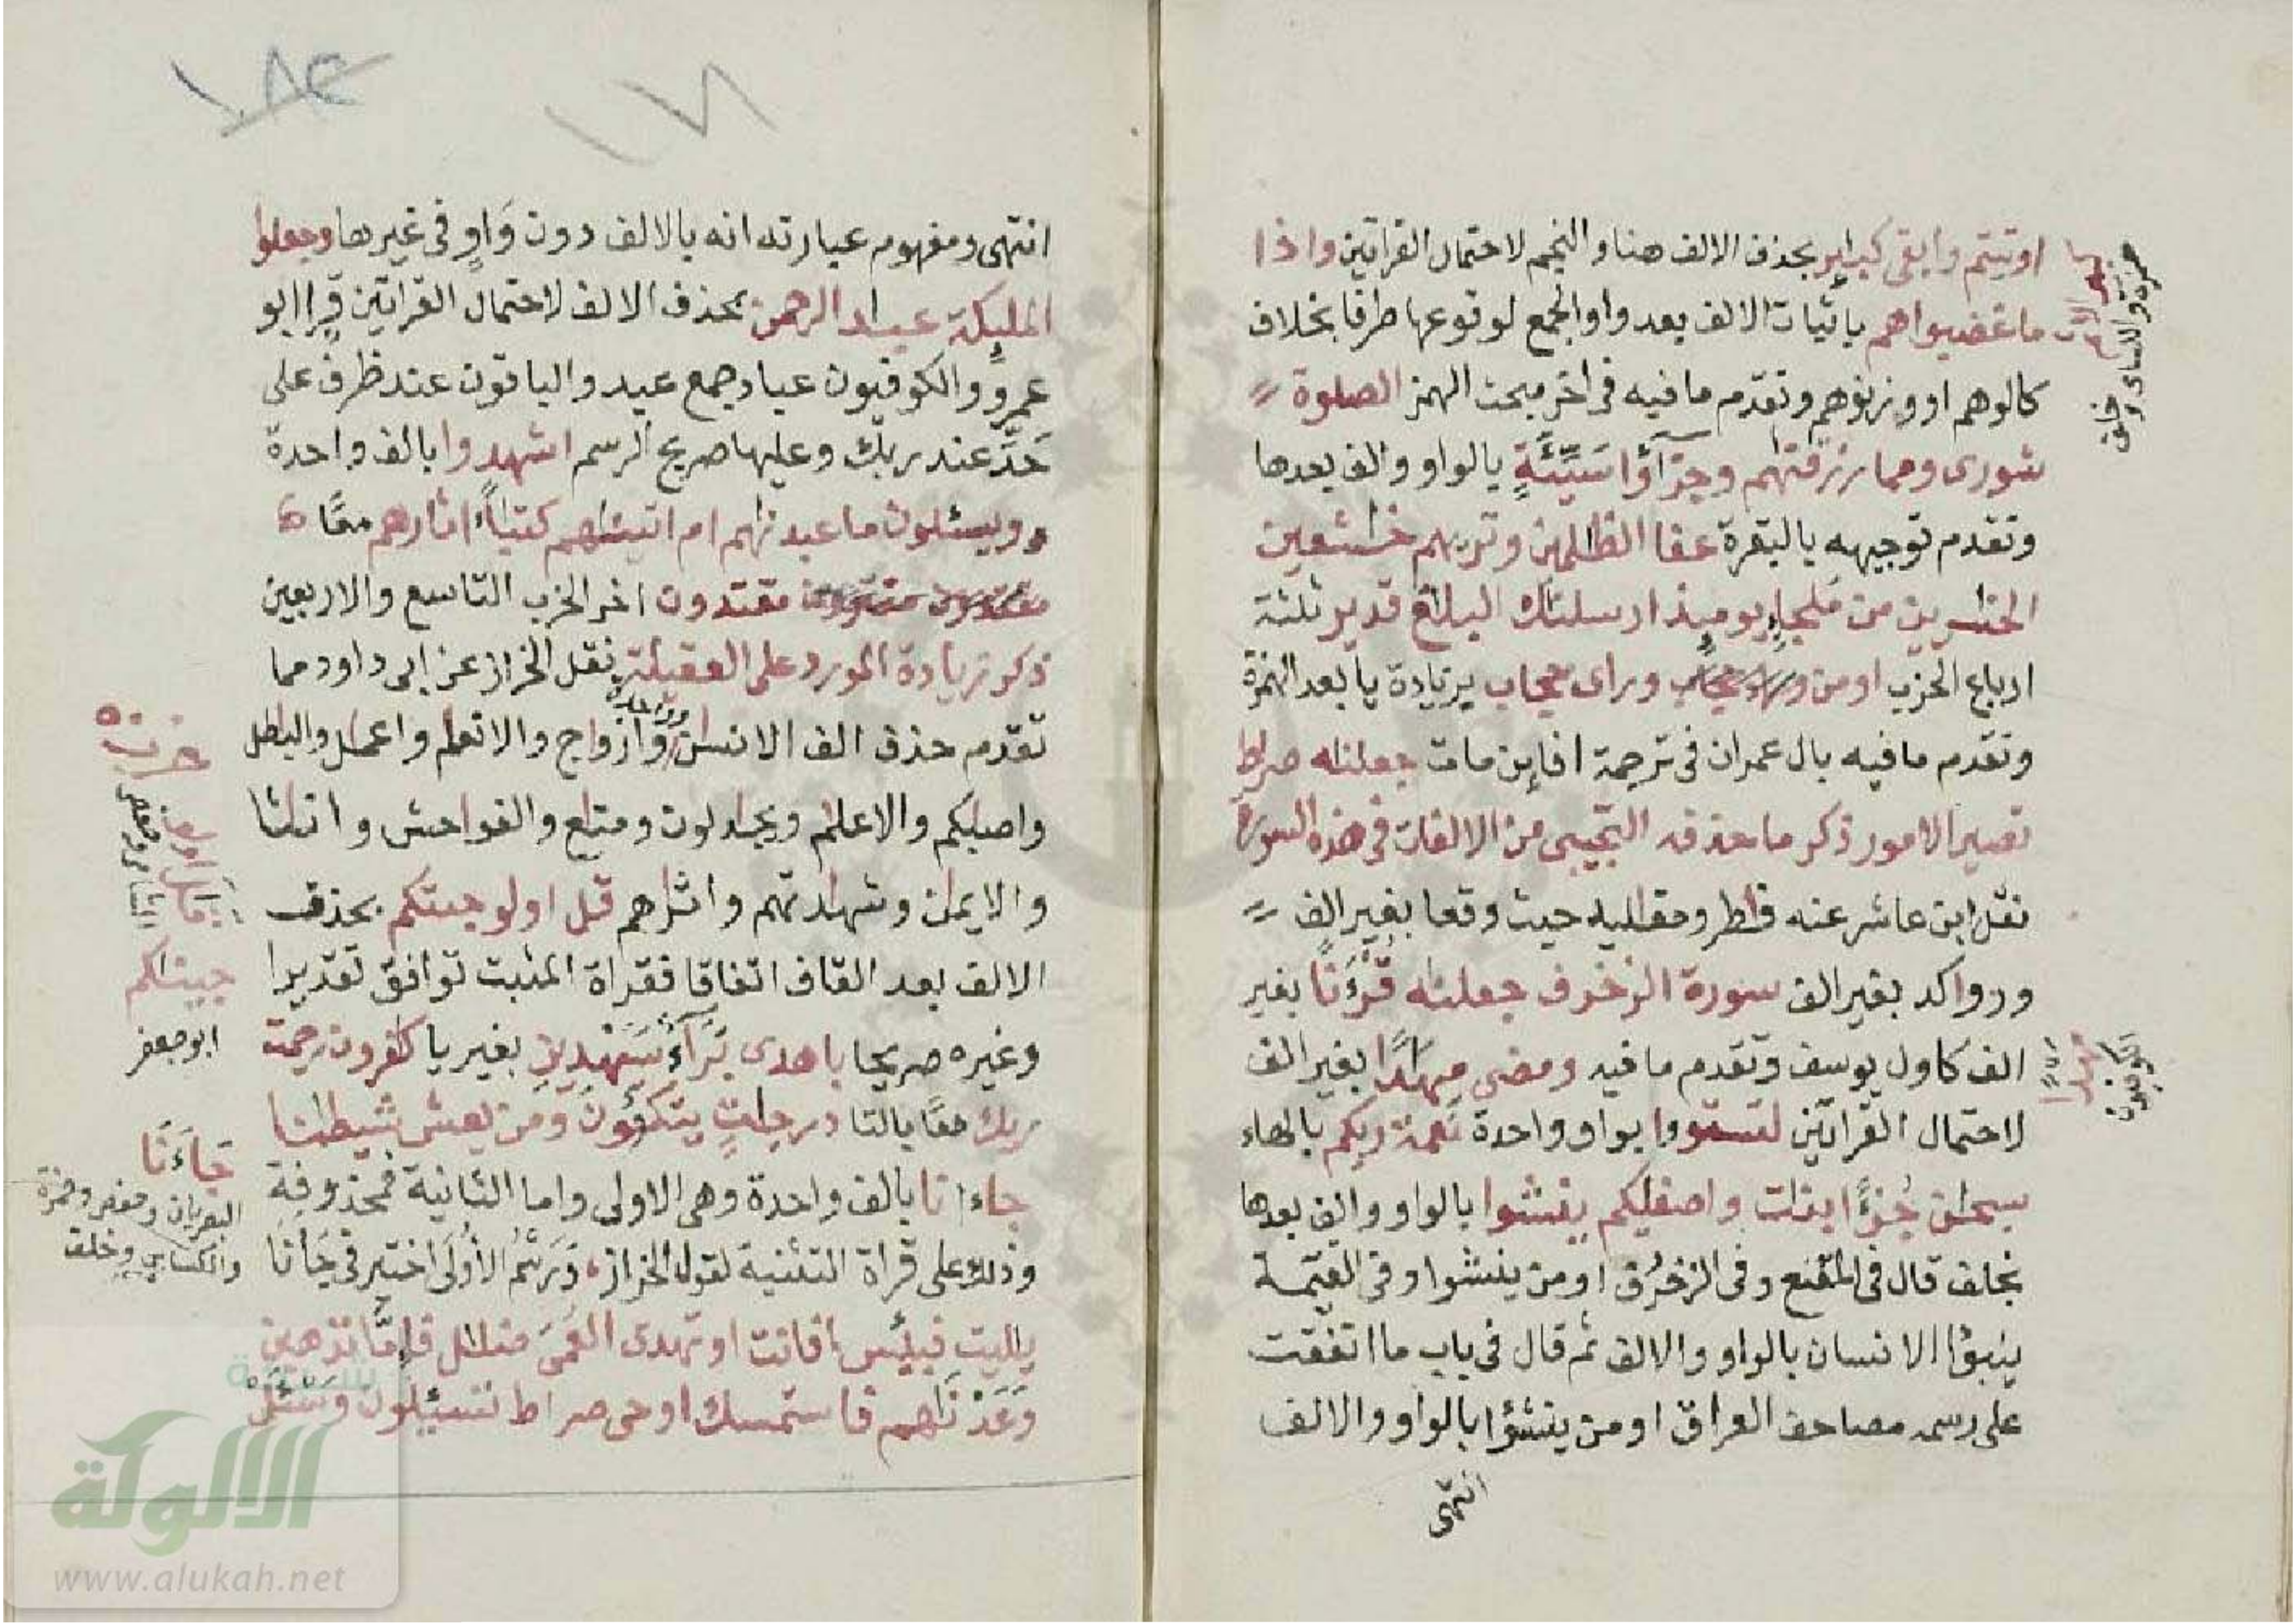 اوتيتم وابقى كبٰير بحذف الالف هنا والنجم لاحتمال القراتين واذا
ما غضبوا هم باثبات الالف بعد واو الجمع لوقوعها طرفا بخلاف
كالوهم او وزنوهم وتقدم ما فيه فى اخر مبحث الهمز الصلوة
شورى ومما رزقنٰهم وجزٰٓؤا سَيِّئَةٍ بالواو والف بعدها
وتقدم توجيهه بالبقرة عفا الظٰلمين وترىهم خٰشعين
الخٰسرين من مَلجإٍ يوميذ ارسلنٰك البلٰغ قدير ثلثة
ارباع الحزب او من وراى حجاب بزيادة يا بعد الهمزة
وتقدم ما فيه بال عمران فى ترجمة افإين مات جعلنٰه صرٰط
تصير الامور ذكر ما حذفه التجيبى من الالفات فى هذه السورة
نقل ابن عاشر عنه فٰطر ومقٰليد حيث وقعا بغير الف
ورواكد بغير الف سورة الزخرف جعلنٰه قُرْءَٰنًا بغير
الف كاول يوسف وتقدم ما فيه ومضى مِهَٰدًا بغير الف
لاحتمال القراتين لتستووا بواو واحدة نعمة ربكم بالهاء
سبحٰن جُزْءًا بنات واصفٰيكم ينشؤا بالواو والف بعدها
بخلف قال فى المقنع وفى الزخرف او من ينشوا وفى القيٰمة
ينبؤا الانسان بالواو والالف ثم قال فى باب ما اتفقت
على رسمه مصاحف العراق او من ينشؤا بالواو والالف
انتهى
حمزة والكساى وخلف
الكوفيون
انتهى ومفهوم عبارته انه بالالف دون وَاوٍ فى غيرها وجعلوا
الملٰيكة عبٰد الرحمن بحذف الالف لاحتمال القراتين قرا ابو
عمرو والكوفيون عباد جمع عبد والباقون عند ظرف على
حَدِّ عند ربك وعليها صريح الرسم اشهدوا بالف واحدة
ويسئلون ما عبدنٰهم ام اتينٰهم كتٰباً اثٰرهم معًا
مقتدون اخر الحزب التاسع والاربعين
ذكر زيادة المورد على العقيلة نقل الخراز عن ابى داود مما
تقدم حذف الف الانسٰن وازوٰاج والانعٰم واعمٰل والبٰطل
وواحدة
واصٰبكم والاعلٰم ويجٰدلون ومتٰع والفواحش وانٰثا
والايمٰن وشهٰدتهم واثٰرهم قٰل اولو جيتكم بحذف
الالف بعد القاف اتفاقا فقراة المثبت توافق تقديرا
وغيره صريحا باهدى بَرَآءٌ سَيَهْدِينِ بغير يا كٰفرون رحمت
ربك معًا بالتا درجٰتٍ يتكؤُنَ ومن يعش شيطٰنا
جاءانا بالف واحدة وهى الاولى واما الثانية فمحذوفة
وذلك على قراة التثنية لقول الخراز، وَرَسْمُ الأُولَى اختير فى جَاءَنَا
يٰليت فبيئس افانت او تهدى العُمْىَ ضلٰل فإمَّا نذهبن
وَعَدْنَٰهم فاستمسك اوحى صرٰط تسئلون وَسْئَلْ
جيناكم
ابو جعفر
جَاءَنَا
البصريان وحفص وحمزة
والكساى وخلف
الالوكة
www.alukah.net